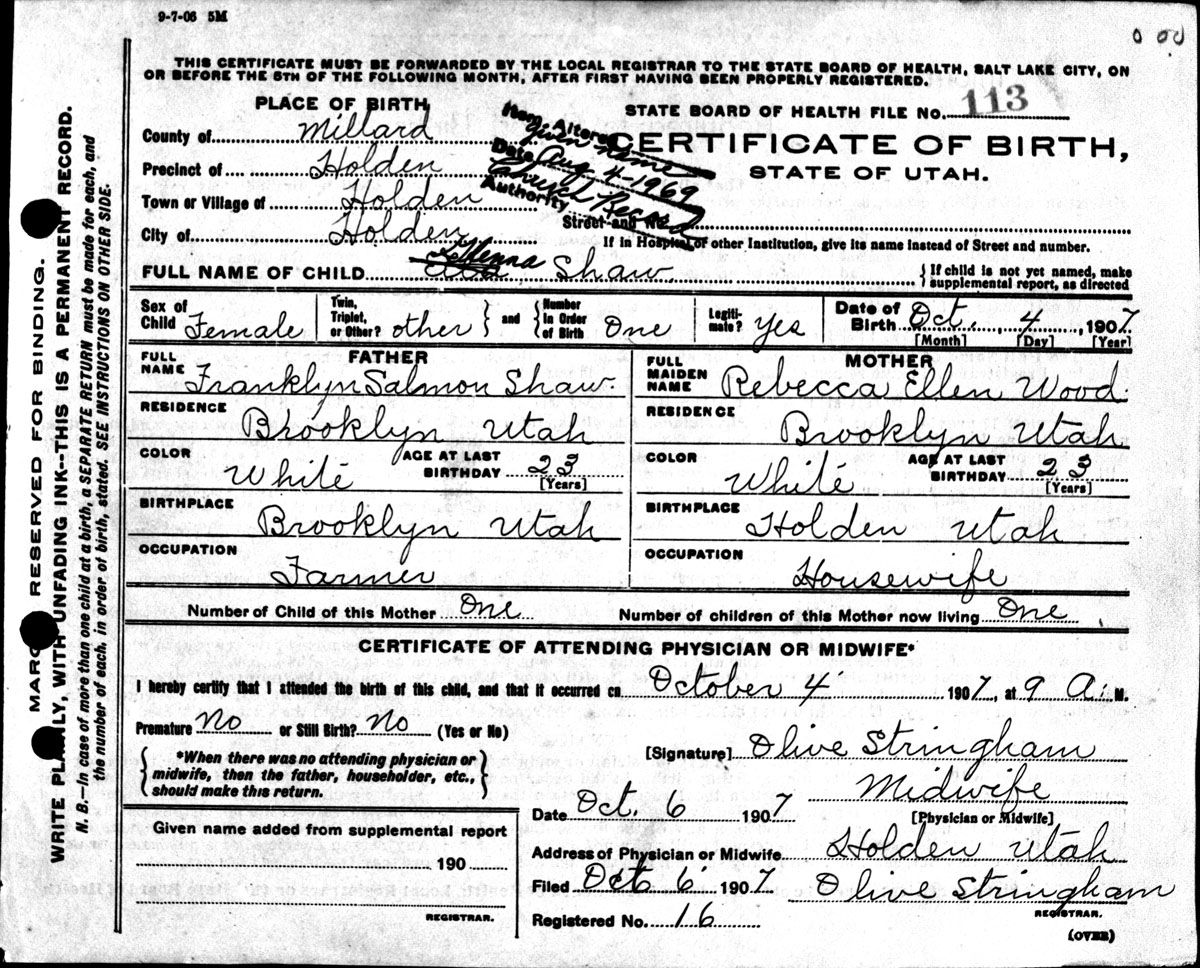 9-7-06 5M
THIS CERTIFICATE MUST BE FORWARDED BY THE LOCAL REGISTRAR TO THE STATE BOARD OF HEALTH, SALT LAKE CITY, ON
OR BEFORE THE 5TH OF THE FOLLOWING MONTH, AFTER FIRST HAVING BEEN PROPERLY REGISTERED.
PLACE OF BIRTH
STATE BOARD OF HEALTH FILE No. 113
County of Millard
Precinct of Holden
Town or Village of Holden
City of Holden
Item Altered
given name
Date Aug 4-1969
Authority Church Record
CERTIFICATE OF BIRTH,
STATE OF UTAH.
Street and No.
If in Hospital or other Institution, give its name instead of Street and number.
FULL NAME OF CHILD Shaw
{If child is not yet named, make
supplemental report, as directed
Sex of Child Female
Twin, Triplet, or Other? other } and { Number In Order of Birth One
Legiti-mate? Yes
Date of Birth Oct. 4, 1907
[Month] [Day] [Year]
FATHER
FULL NAME Franklyn Salmon Shaw
RESIDENCE Brooklyn Utah
COLOR White AGE AT LAST BIRTHDAY 23
[Years]
BIRTHPLACE Brooklyn Utah
OCCUPATION Farmer
MOTHER
FULL MAIDEN NAME Rebecca Ellen Wood
RESIDENCE Brooklyn Utah
COLOR White AGE AT LAST BIRTHDAY 23
[Years]
BIRTHPLACE Holden Utah
OCCUPATION Housewife
Number of Child of this Mother One Number of children of this Mother now living One
CERTIFICATE OF ATTENDING PHYSICIAN OR MIDWIFE*
I hereby certify that I attended the birth of this child, and that it occurred on October 4 1907, at 9 A. M.
Premature No or Still Birth? No (Yes or No)
{*When there was no attending physician or
midwife, then the father, householder, etc.,
should make this return.}
[Signature] Olive Stringham
Midwife
[Physician or Midwife]
Date Oct. 6 1907
Address of Physician or Midwife Holden Utah
Filed Oct 6 1907 Olive Stringham
REGISTRAR.
Registered No. 16
(OVER)
Given name added from supplemental report
190
REGISTRAR.
RESERVED FOR BINDING.
WRITE PLAINLY, WITH UNFADING INK--THIS IS A PERMANENT RECORD.
N. B.—In case of more than one child at a birth, a SEPARATE RETURN must be made for each, and
the number of each, in order of birth, stated. SEE INSTRUCTIONS ON OTHER SIDE.